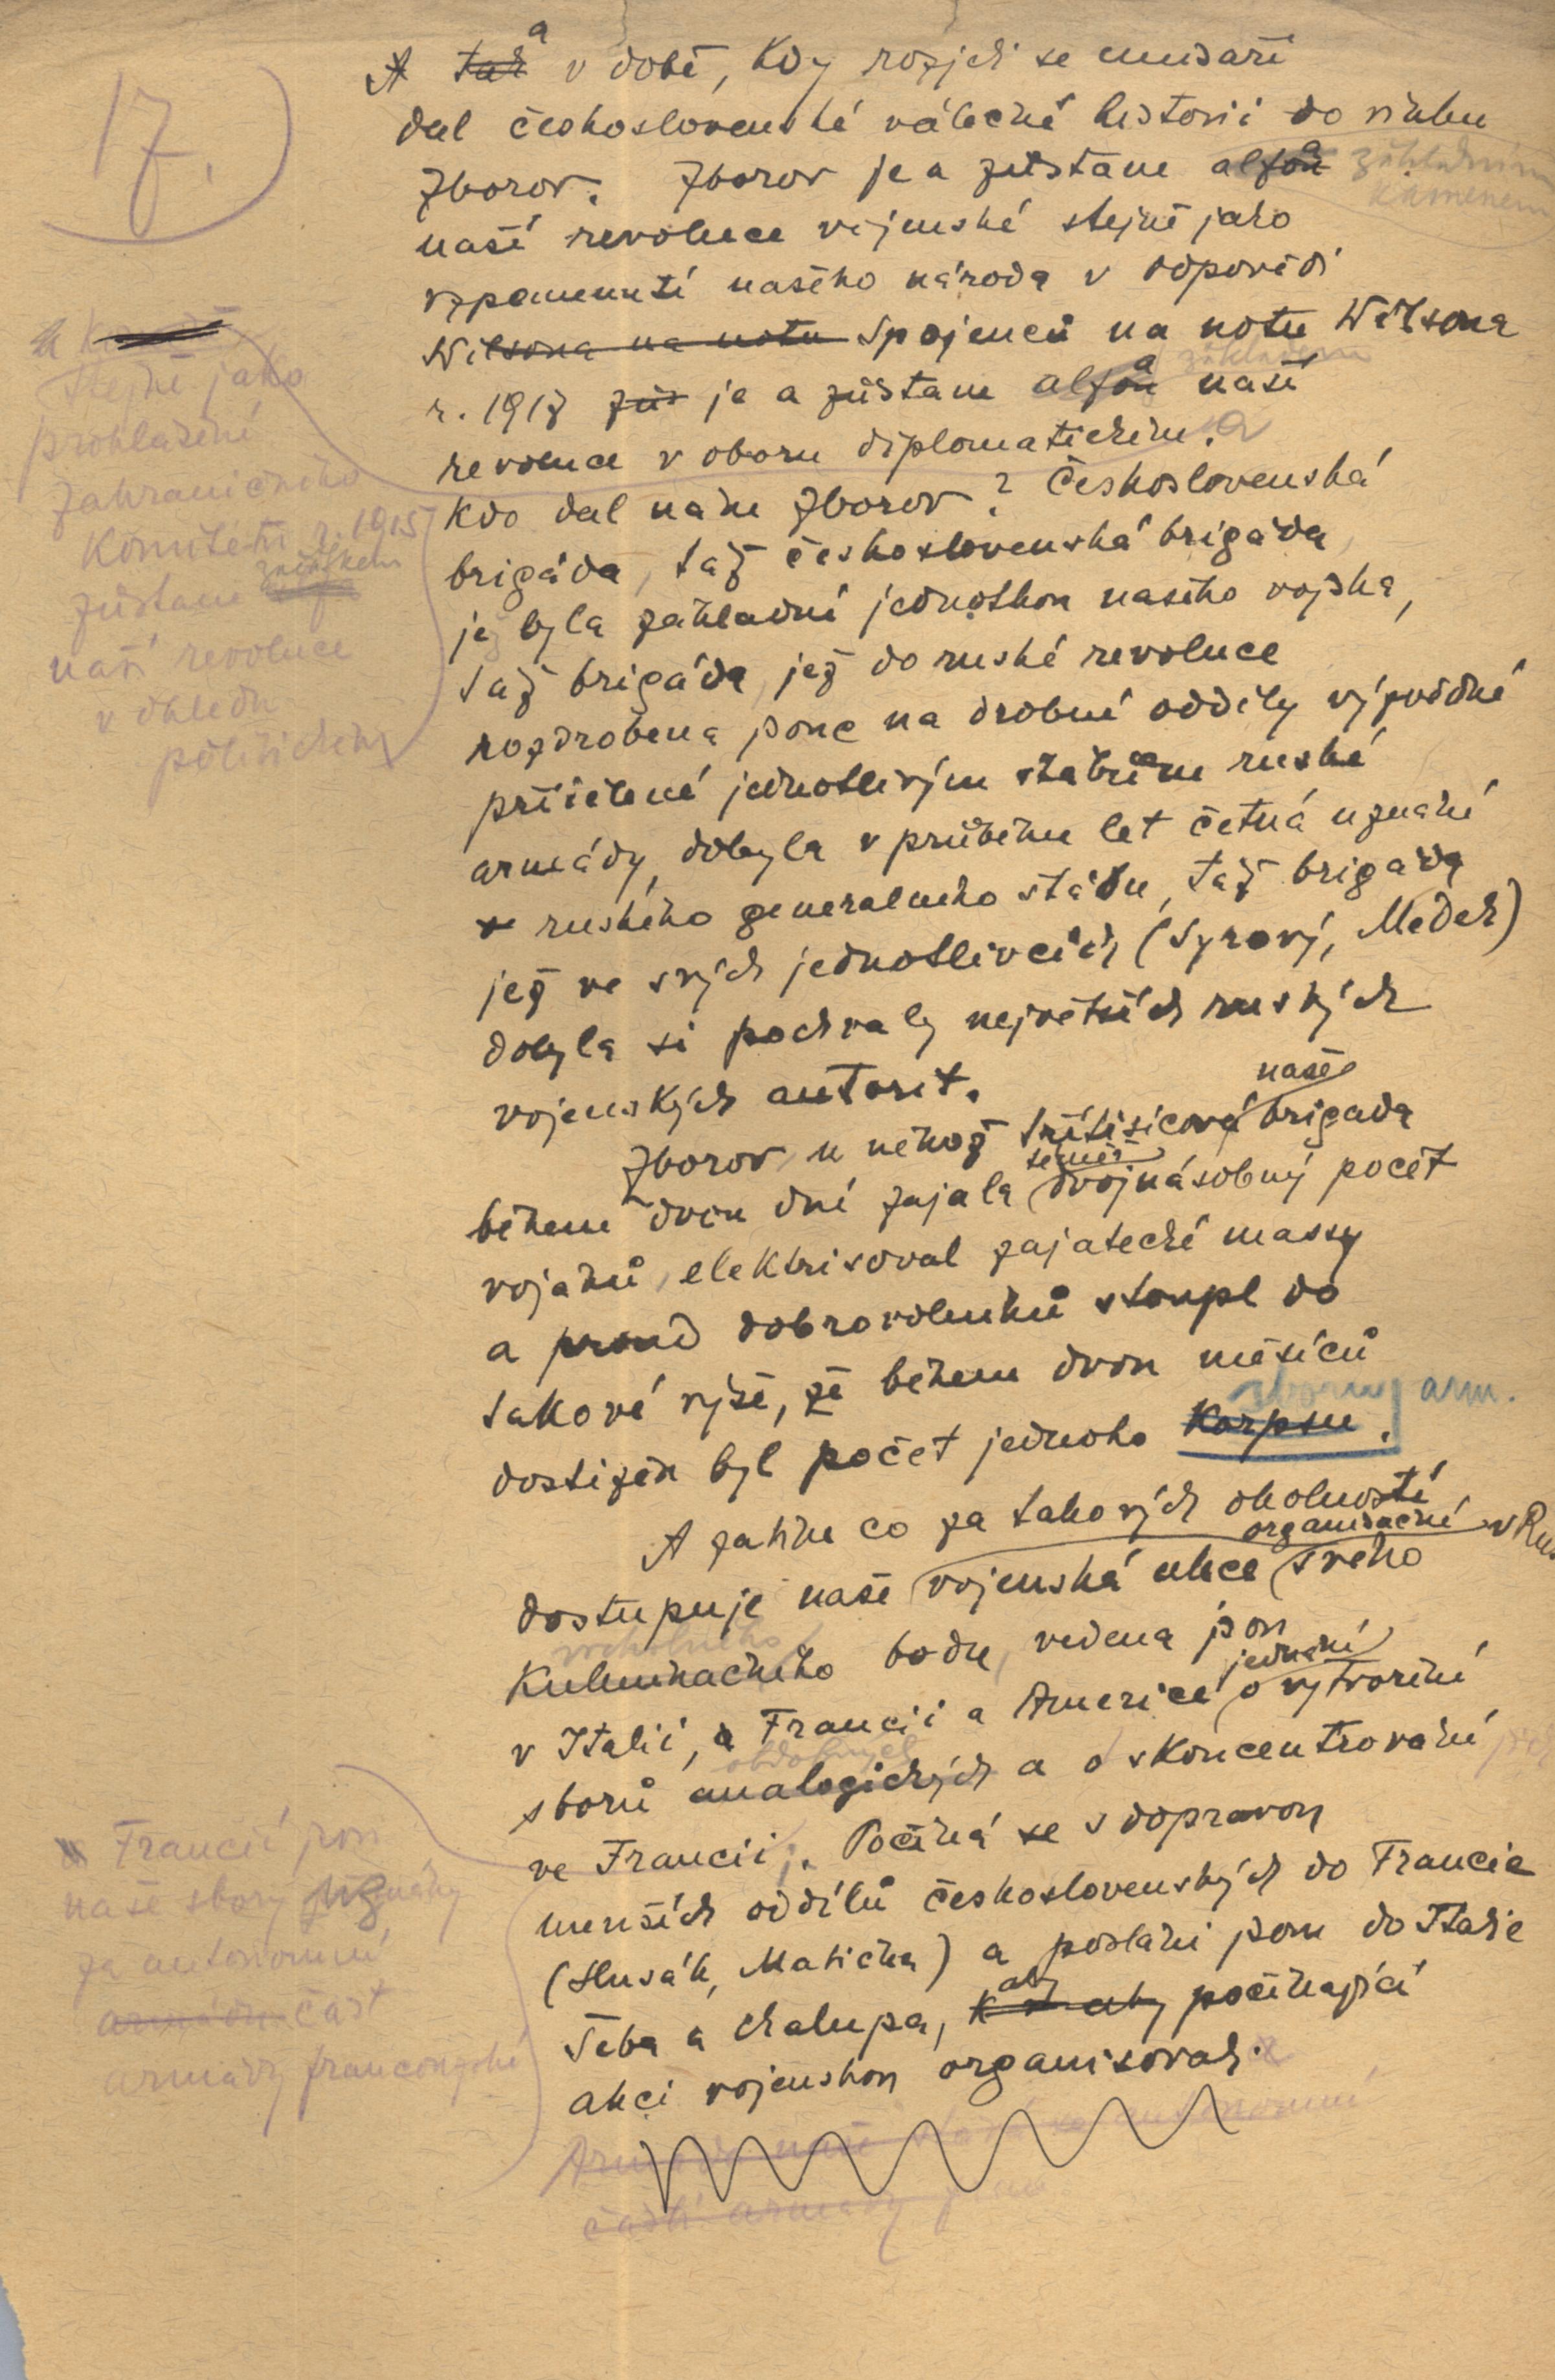 17.
A tak a v době, kdy rozjeli se emisaři
dal československé válečné historii do vínku
Zborov. Zborov je a zůstane alfou základním
kamenem
naší revoluce vojenské stejně jako
vzpomenutí našeho národa v odpovědi
Wilsona na notu Spojenců na notu Wilsona
základem
r. 1917 zůs je a zůstane alfou naší
revoluce v oboru diplomatickém. a
Stejně jako
prohlášení
zahraničního
Komitétu r. 1915
začátkem
zůstane
naší revoluce
v ohledu
politickém
Kdo dal nám Zborov? Československá
brigáda, táž československá brigáda,
jež byla základní jednotkou našeho vojska,
táž brigáda, jež do ruské revoluce
rozdrobena jsouc na drobné oddíly výzvědné
přičleněné jednotlivým štábům ruské
armády, dobyla v průběhu let četná uznání
ruského generalního štábu, táž brigáda
jež ve svých jednotlivcích (Syrový, Medek)
dobyla si pochvaly největších ruských
vojenských autorit.
naše
Zborov, u něhož třítisícová brigáda
téměř
během dvou dní zajala dvojnásobný počet
vojáků, elektrisoval zajatecké massy
a proud dobrovolníků stoupl do
takové výše, že během dvou měsíců
sboru arm.
dostižen byl počet jednoho Korpsu.
A zatím co za takových okolností
organisační v Rus
dostupuje naše vojenská akce svého
vrcholného
Kulminačního bodu, vedena jsou
jednání
v Italii, a Francii a Americe o vytvoření
obdobných
sborů analogických a o skoncentrování
ve Francii. Počíná se s dopravou
Francií jsou
naše sbory uznány
za autonomní
armádu část
armády francouzské
menších oddílů československých do Francie
(Husák, Matička) a posláni jsou do Italie
aby
Šeba a Chalupa, k aby počínající
akci vojenskou organisovali.
Armáda naše autonomní
částí armády